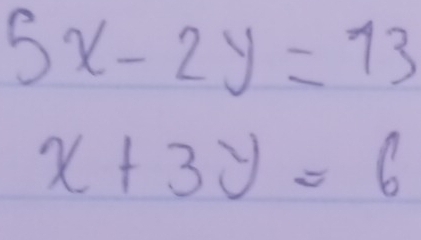 5x - 2y = 13
x + 3y = 6